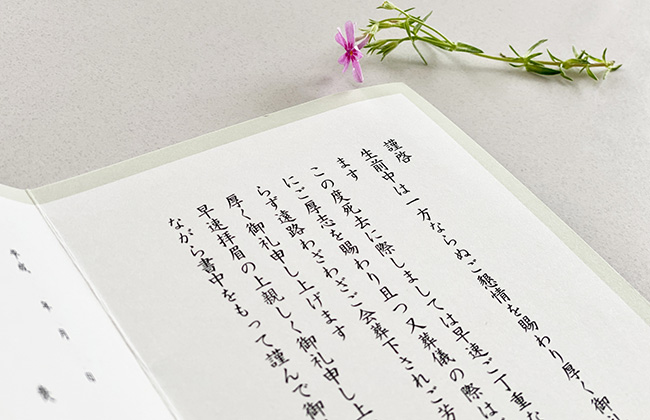 謹啓
生前中は一方ならぬご懇情を賜わり厚く御
ます
この度死去に際しましては早速ご丁重な
にご厚志を賜わり且つ又葬儀の際は
らず遠路わざわざご会葬下されご芳
厚く御礼申し上げます
早速拝眉の上親しく御礼申し上
ながら書中をもって謹んで御
年月日